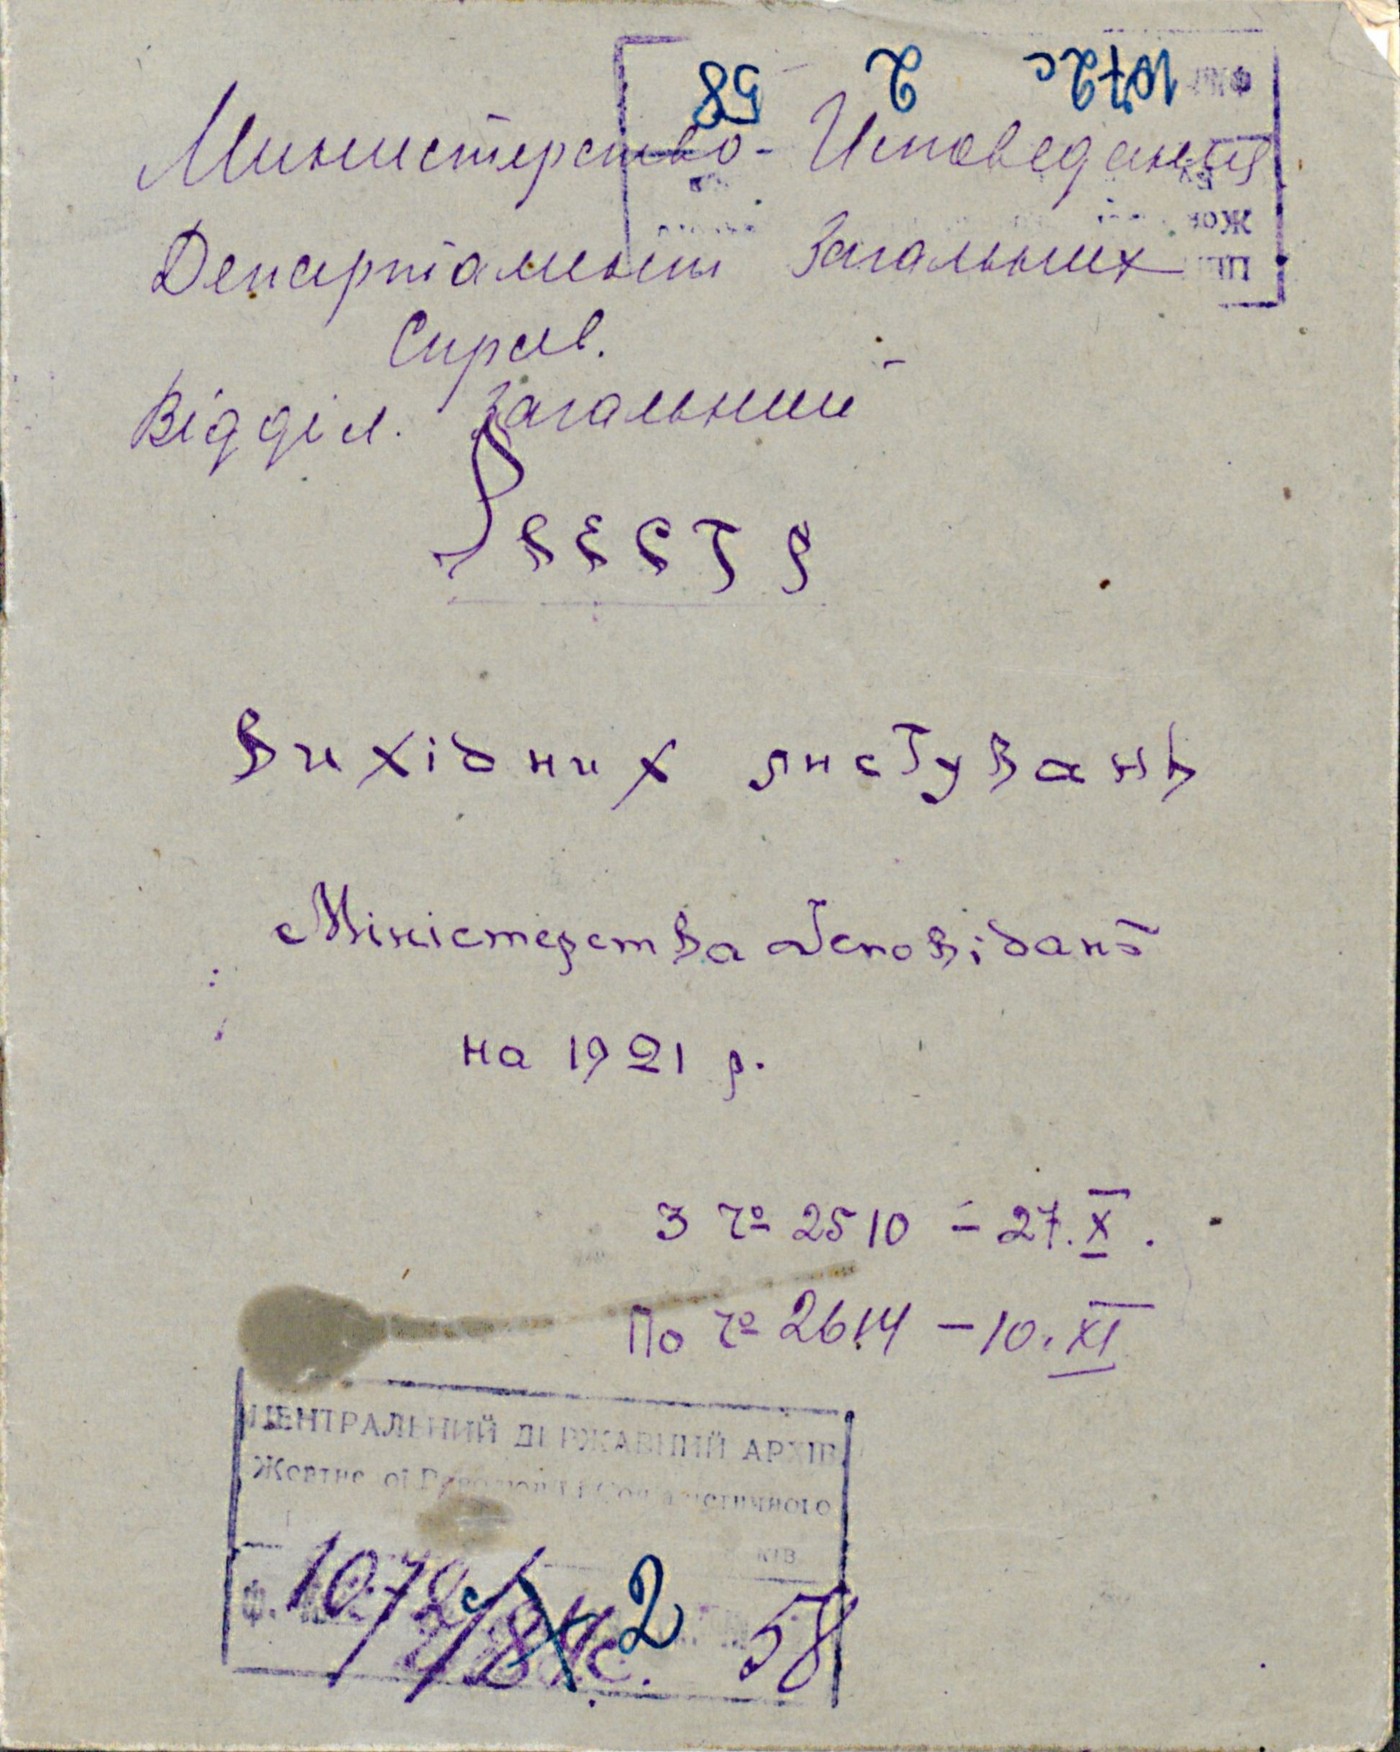 58 2 1072с
Министерство Исповедания
Департамент Загальних
Справ.
Відділ. Загальний
Реєстр
Вихідних листувань
Міністерства Ісповідань
на 1921 р.
З чо 2510 – 27.X.
По чо 2614 – 10.XI
ЦЕНТРАЛЬНИЙ ДЕРЖАВНИЙ АРХІВ
Жовтневої Революції і Соціалістичного
Ф. 1072 2 58